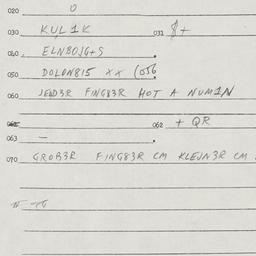 020 0
030 KUL1K 031 $+
040 ELNBOJG+S
050 DOLON815 XX (056
060 JEDD3R FING83R HOT A NUM1N
062 + QR
063 –
070 GROB3R FING83R CM KLEJN3R CM